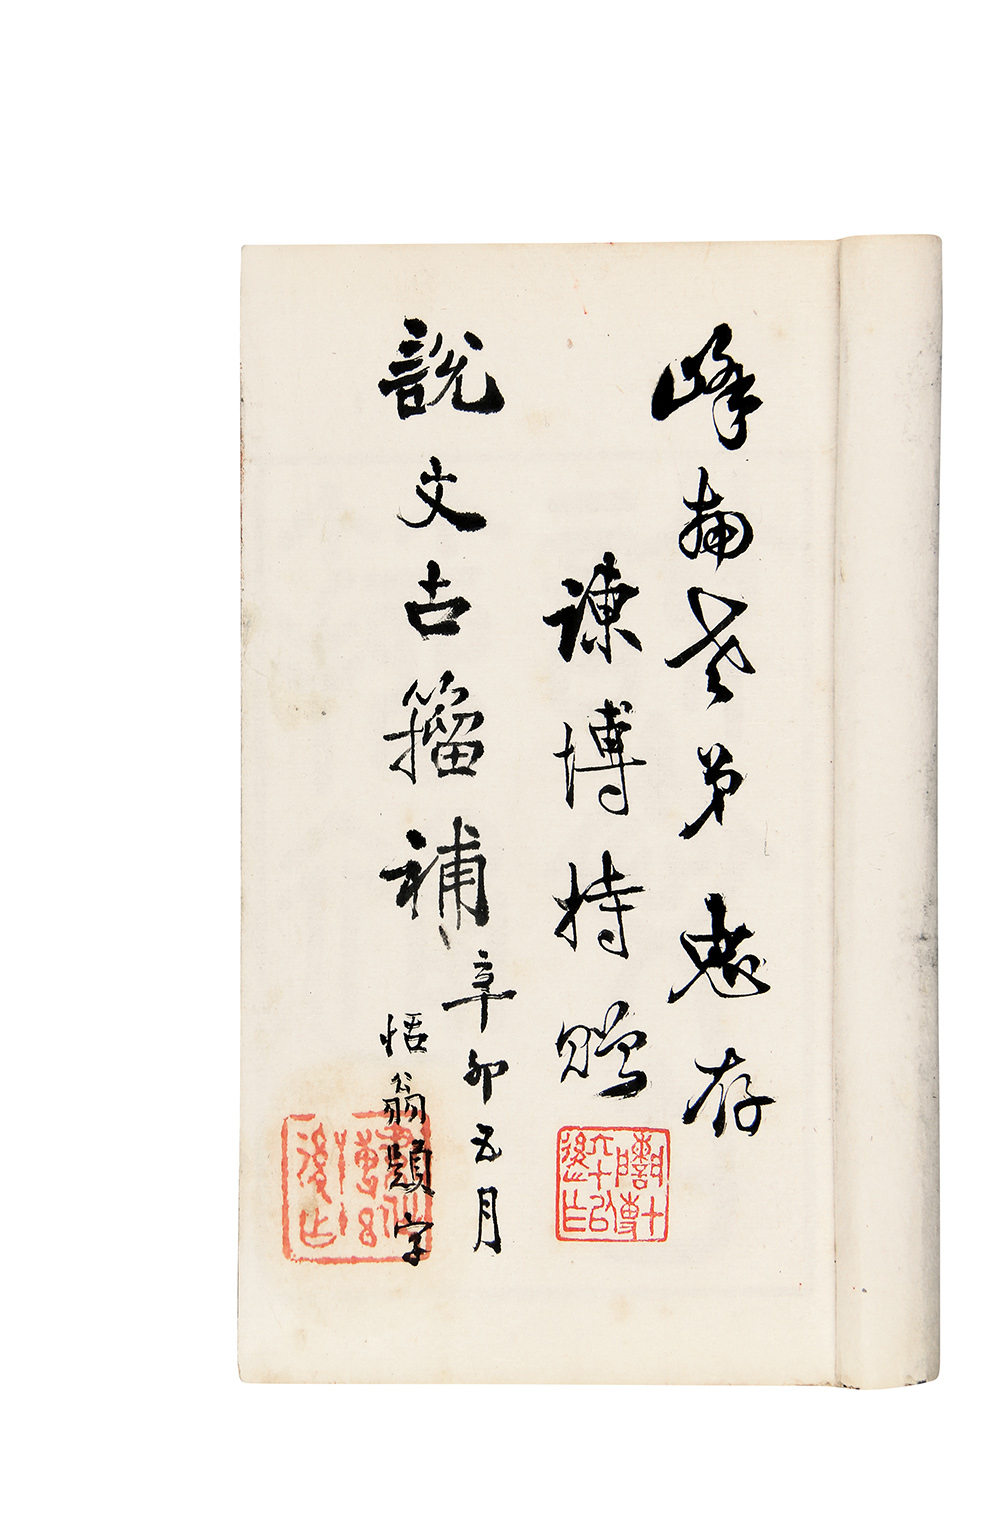 峰梅老弟惠存
諫博持贈
說文古籀補
辛卯五月
悟翁題字